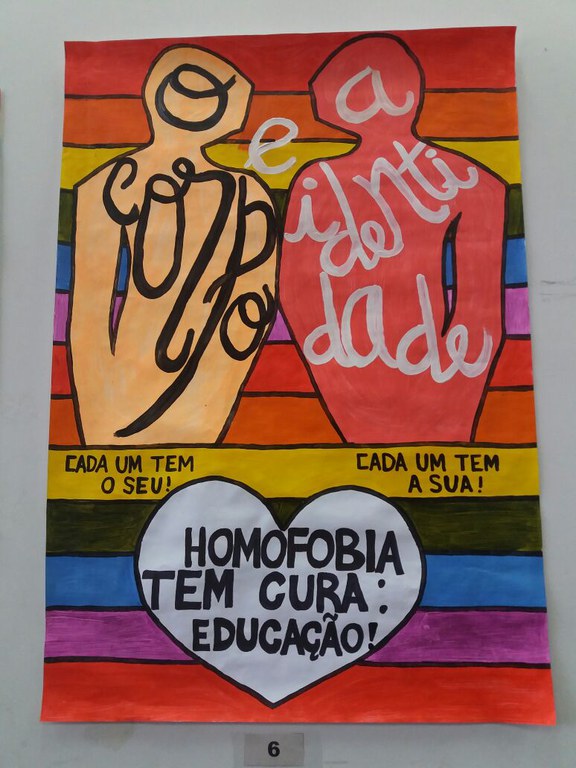 o corpo
e
a identidade
CADA UM TEM
O SEU!
CADA UM TEM
A SUA!
HOMOFOBIA
TEM CURA:
EDUCAÇÃO!
6